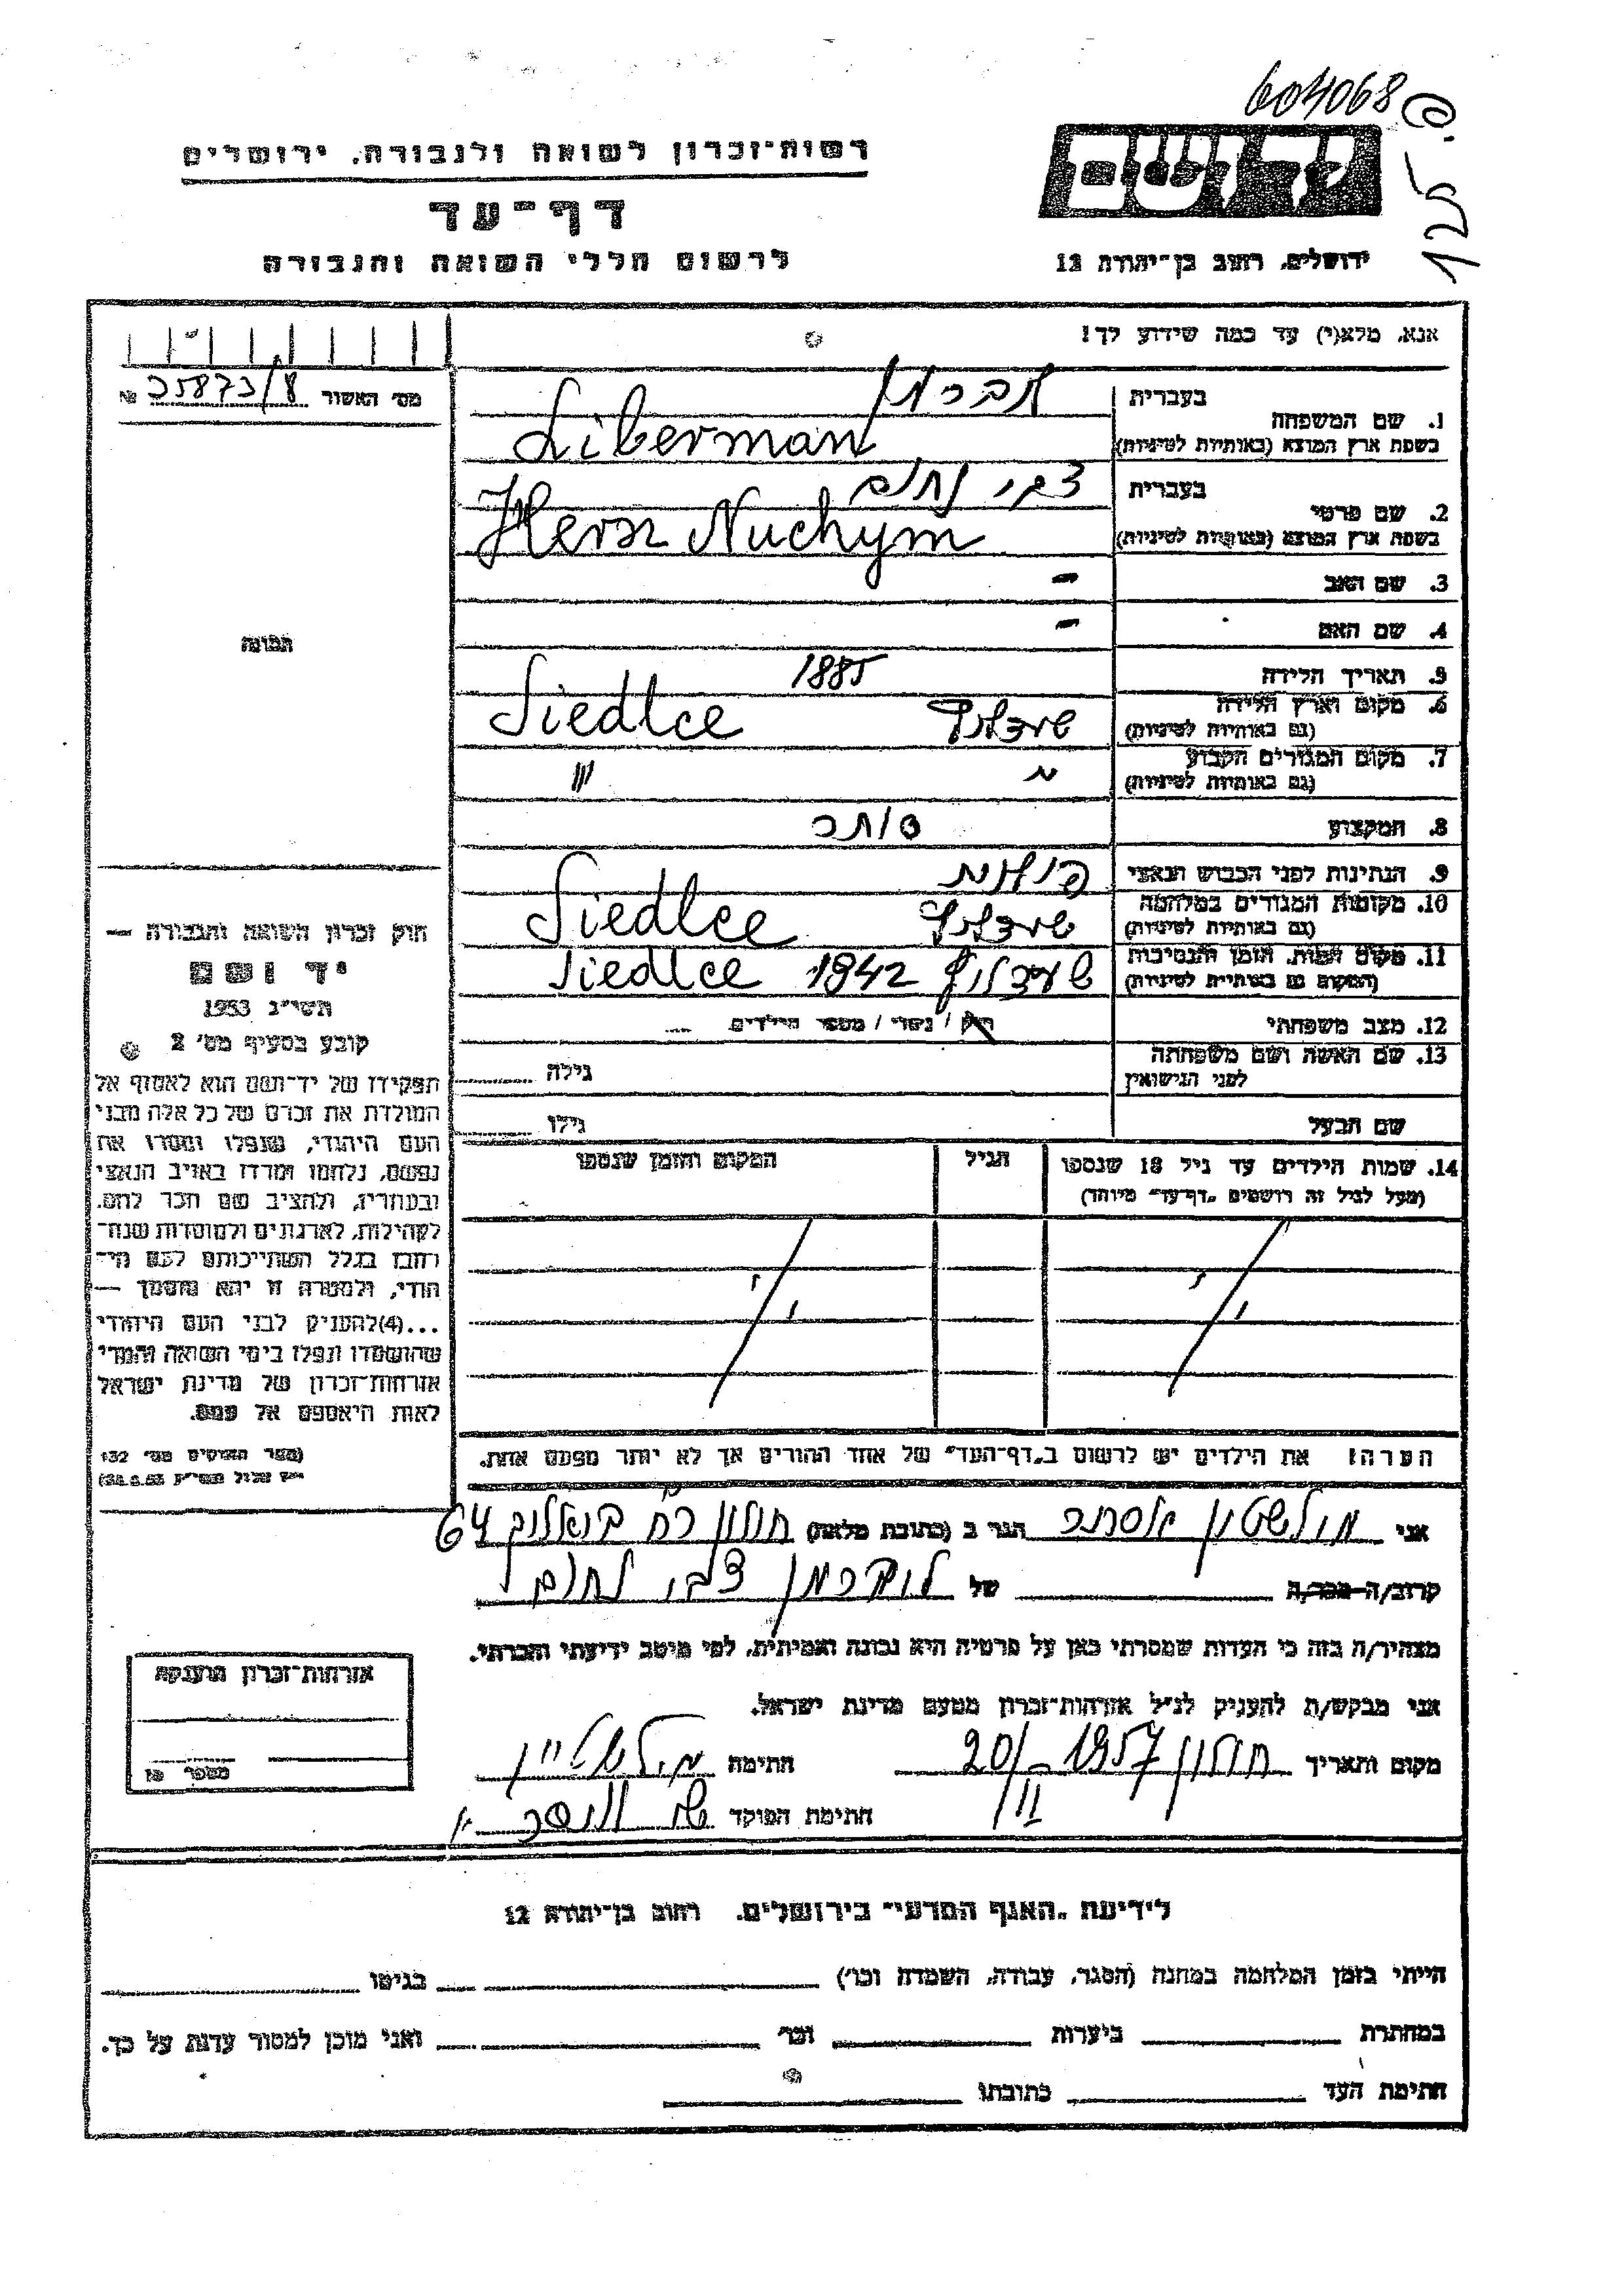 604068
125
רשות־זכרון לשואה ולגבורה, ירושלים
דף־עד
לרשום חללי השואה והגבורה
ירושלים, רחוב בן־יהודה 12
אנא, מלא(י) עד כמה שידוע לך!
מס' האשור
1. שם המשפחה
בעברית
בשפת ארץ המוצא (באותיות לטיניות)
Liberman
2. שם פרטי
בעברית צבי נחום
בשפת ארץ המוצא (באותיות לטיניות)
Hersz Nuchym
3. שם האב -
4. שם האם -
5. תאריך הלידה 1885
6. מקום וארץ הלידה
(גם באותיות לטיניות)
שידלץ Siedlce
7. מקום המגורים הקבוע
(גם באותיות לטיניות)
" "
8. המקצוע סוחר
9. הנתינות לפני הכבוש הנאצי פולנית
10. מקומות המגורים במלחמה
(גם באותיות לטיניות)
שידלץ Siedlce
11. מקום המות, הזמן והנסיבות
(המקום גם באותיות לטיניות)
שידלץ 1942 Siedlce
12. מצב משפחתי
רוק / נשוי / מספר הילדים
13. שם האשה ושם משפחתה
לפני הנישואין
גילה
שם הבעל
גילו
14. שמות הילדים עד גיל 18 שנספו
(מעל לגיל זה רושמים "דף־עד" מיוחד)
הגיל
המקום והזמן שנספו
הערה: את הילדים יש לרשום ב"דף־העד" של אחד ההורים אך לא יותר מפעם אחת.
תמונה
חוק זכרון השואה והגבורה —
יד ושם
תשי"ג 1953
קובע בסעיף מס' 2
תפקידו של יד־ושם הוא לאסוף אל
המולדת את זכרם של כל אלה מבני
העם היהודי, שנפלו ומסרו את
נפשם, נלחמו ומרדו באויב הנאצי
ובעוזריו, ולהציב שם וזכר להם,
לקהילות, לארגונים ולמוסדות שנח־
רבו בגלל השתייכותם לעם הי־
הודי, ולמטרה זו יהא מוסמך —
...(4) להעניק לבני העם היהודי
שהושמדו ונפלו בימי השואה והמרי
אזרחות־זכרון של מדינת ישראל
לאות היאספם אל עמם.
(ספר החוקים מס' 132
אני אסתר הגר ב (כתובת מלאה) חולון 64
קרוב/ה מכר/ה של ליברמן צבי נחום
מצהיר/ה בזה כי העדות שמסרתי כאן על פרטיה היא נכונה ואמיתית, לפי מיטב ידיעתי והכרתי.
אני מבקש/ת להעניק לנ"ל אזרחות־זכרון מטעם מדינת ישראל.
מקום ותאריך חולון 20/III 1957 חתימה
חתימת הפוקד
אזרחות־זכרון הוענקה
לידיעת "האגף המדעי" בירושלים, רחוב בן־יהודה 12
הייתי בזמן המלחמה במחנה (הסגר, עבודה, השמדה וכו') בגיטו
במחתרת ביערות וכו' ואני מוכן למסור עדות על כך.
חתימת העד כתובתו